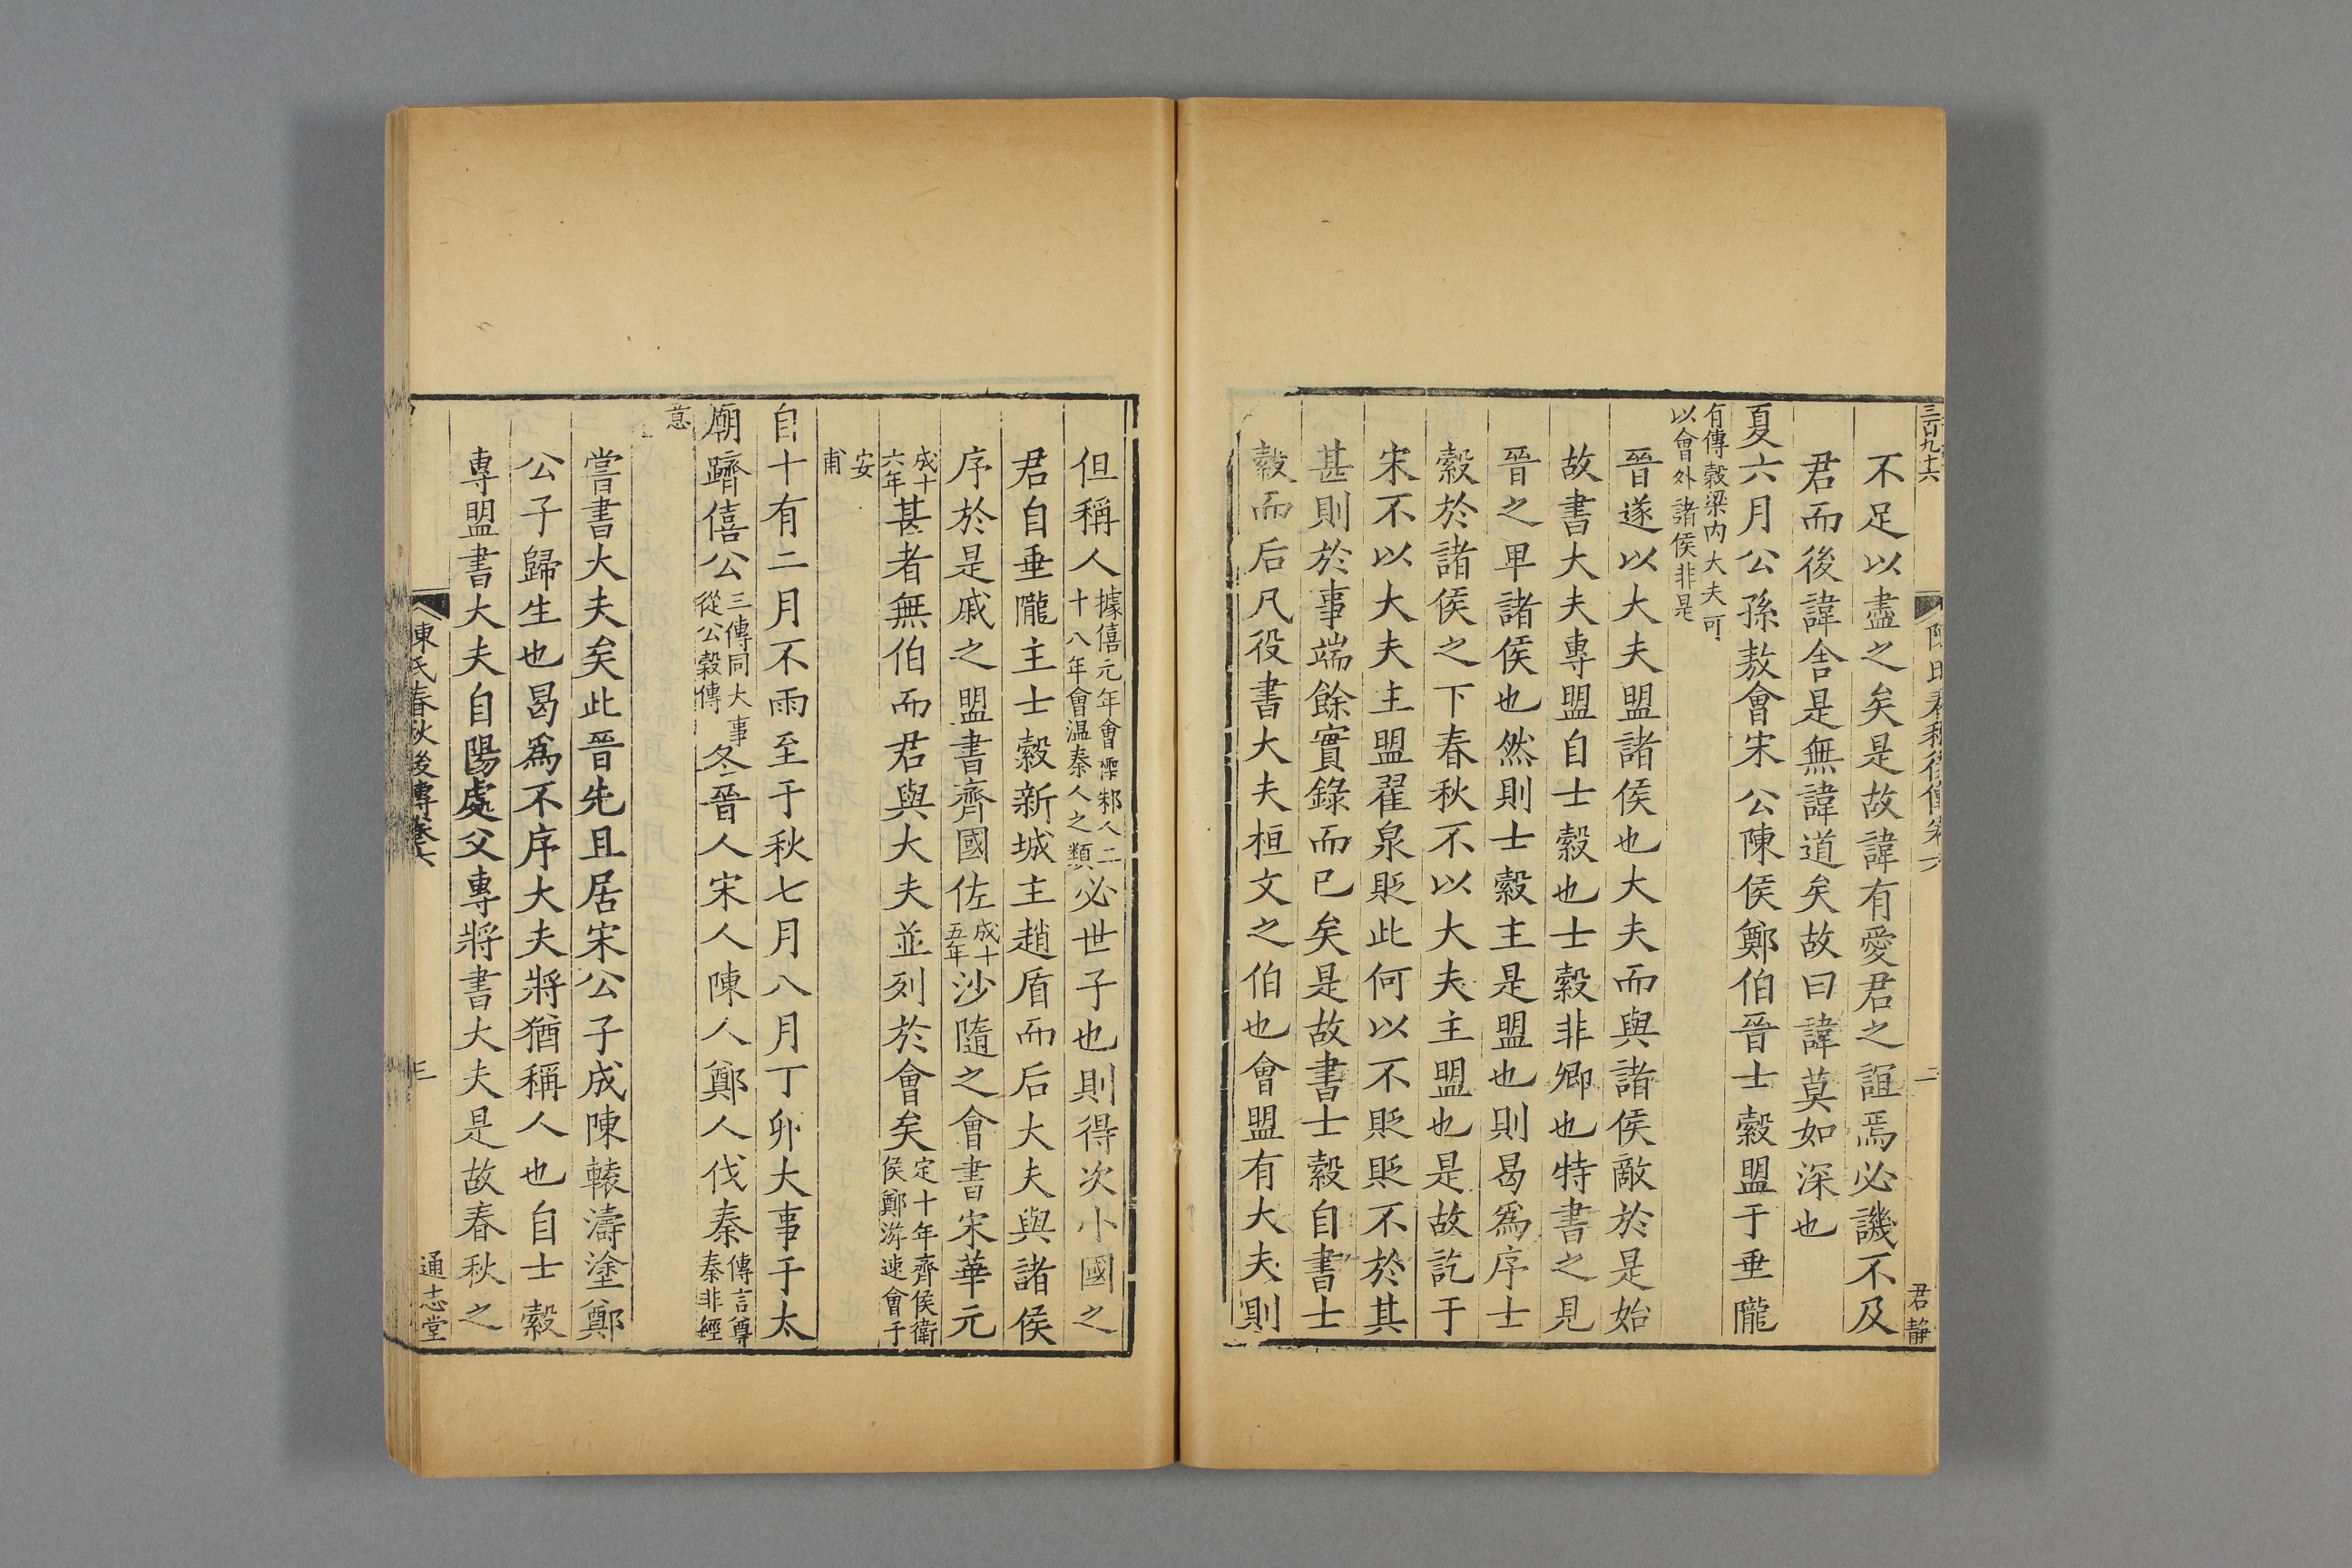 三百九十六
陳氏春秋後傳卷六
二
君靜
不足以盡之矣是故諱有愛君之誼焉必譏不及
君而後諱舍是無諱道矣故曰諱莫如深也
夏六月公孫敖會宋公陳侯鄭伯晉士縠盟于垂隴
有傳穀梁内大夫可
以會外諸侯非是
晉遂以大夫盟諸侯也大夫而與諸侯敵於是始
故書大夫專盟自士縠也士縠非卿也特書之見
晉之卑諸侯也然則士縠主是盟也則曷爲序士
縠於諸侯之下春秋不以大夫主盟也是故訖于
宋不以大夫主盟翟泉貶此何以不貶貶不於其
甚則於事端餘實錄而已矣是故書士縠自書士
縠而后凡役書大夫桓文之伯也會盟有大夫則
但稱人據僖元年會檉邾人二十八年會温秦人之類必世子也則得次小國之
君自垂隴主士縠新城主趙盾而后大夫與諸侯
序於是戚之盟書齊國佐成十五年沙隨之會書宋華元
成十六年甚者無伯而君與大夫並列於會矣定十年齊侯衛侯鄭游速會于
安甫
自十有二月不雨至于秋七月八月丁卯大事于太
廟躋僖公三傳同大事從公穀傳冬晉人宋人陳人鄭人伐秦傳言尊秦非經
意
嘗書大夫矣此晉先且居宋公子成陳轅濤塗鄭
公子歸生也曷爲不序大夫將猶稱人也自士縠
專盟書大夫自陽處父專將書大夫是故春秋之
陳氏春秋後傳卷六
三
通志堂